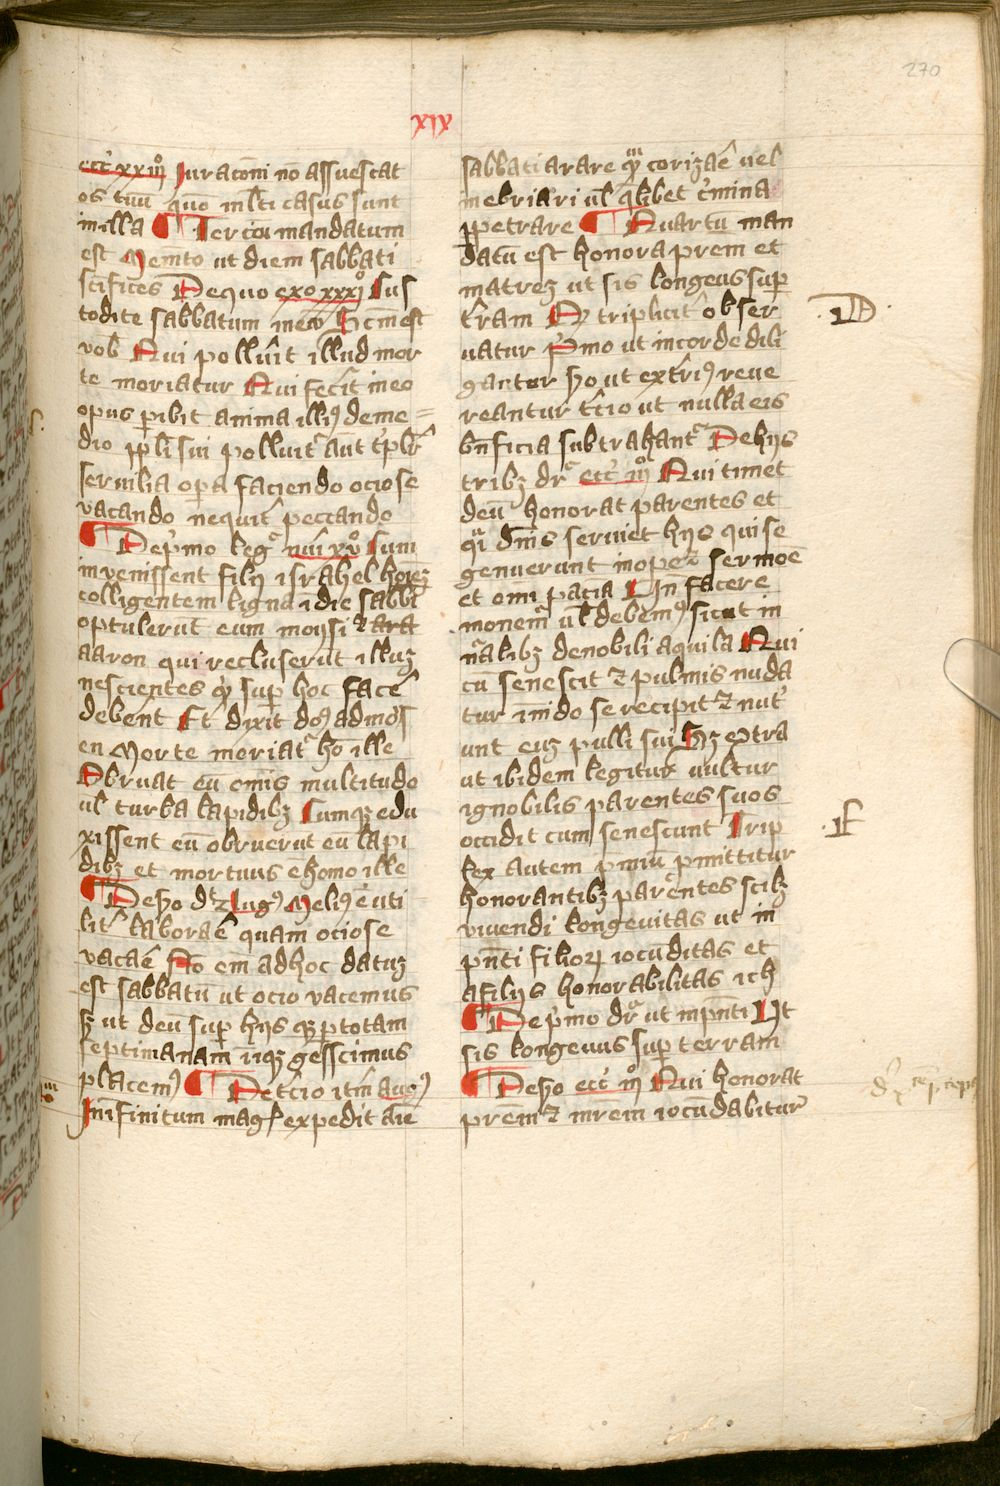 270
xix
ecc͛ xxiijº Iuracōni nō assuescat
os tuū quō ml̄ti casus sunt
in illa ¶ Terciū mandatum
est Mem̄to ut diem sabbati
sc̄ifices De quo exo xxxjº Cus
todite sabbatum meū Sc̄m est
vob̄ Qui polluīt illud mor
te moriatur Qui fec̄it in eo
opus ꝑibit anima illiꝰ de me
dio pp̄li sui polluit᷑ aut tp̄lr͛
seruilia oꝑa faciendo ociose
vacando nequit͛ peccando
¶ De pͥmo leg᷑ nūi xvº Cum
invenissent filij israhel hoīeꝫ
colligentem ligna ī die sabbi
optulerūt eum moysi ⁊ ara
aaron qui recluserūt illuꝫ
nescientes qͥd suꝑ hoc face͛
debēnt Et dixit dōs ad moys
en Morte moriat᷑ ho͞ ille
Obruat eū omīs multitudo
ul turba lapidibꝫ Cumqꝫ edu
xissent eū obruerūt eū lapi
dibꝫ et mortuus ē homo ille
¶ De 2o dt͛ Augꝰ Meliꝰ ē uti
lit͛ laborae͛ quam ociose
vacae͛ Nō em̄ ad hoc datuꝫ
est sabbatū ut ocio vacemus
sꝫ ut deū suꝑ hijs qꝫ ꝑ totam
septimanam īiqꝫ gesscimus
placemꝰ ¶ De tc͛io itm̄ augꝰ
In infinitum mag̃ expedit die
sabbati arare qͣm corizae͛ uel
inebriari ul̄ qͣlibet c͛mina
ꝑpetrare ¶ Quartū man
datū est honora prem et
matreꝫ ut sis longeuus suꝑ
tr͛am Et triplicit͛ obser
uatur Pͥmo ut in corde dili
gantur 2o ut ext͛riꝰ reue
reantur tc͛io ut nulla eis
bn̄ficia subtrahant᷑ De hijs
tribꝫ dr᷑ ecc͛ iijº Qui timet
deū honorat parentes et
qͣi dn̄is seruiet hijs qui se
genuerunt in oꝑe ⁊ sermoē
et omī pacīa In facere
monem᷑ ul̄ debemꝰ sicut in
nat᷑alibꝫ de nobili aquila Qui
cū senescit ⁊ pulmis nuda
tur ī nido se recipit ⁊ nut͛
unt euꝫ pulli sui Sꝫ extra
ut ibidem legitur uultur
ignobilis parentes suos
occidit cum senescunt Trip
lex autem p͞miū ꝓmittitur
honorantibꝫ parentes scilꝫ
viuendi longeuitas ut in
pn̄ti filioꝝ iocūditas et
a filijs honorabilitas ich
¶ De pͥmo dr᷑ ut in pn̄ti Ut
sis longeuus suꝑ terram
¶ De 2o ecc͛ iijº Qui honorat
prem ⁊ mrēm iocūdabitur
D
F